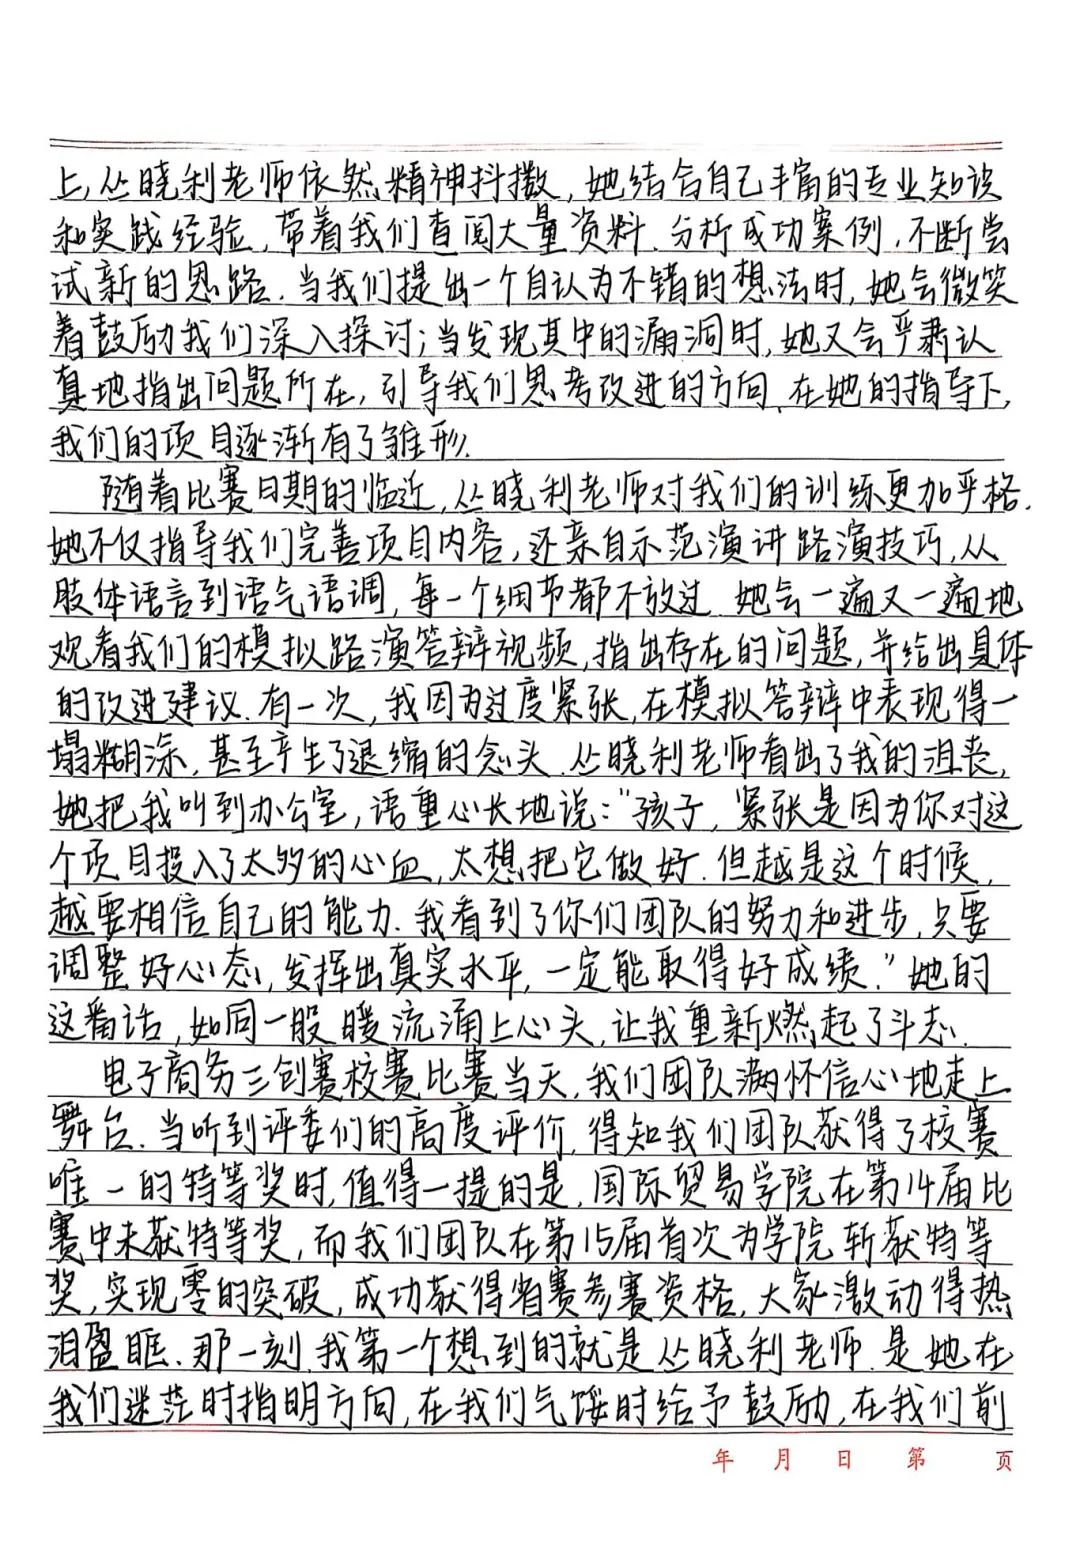 上,丛晓利老师依然精神抖擞,她结合自己丰富的专业知识
和实践经验,带着我们查阅大量资料.分析成功案例,不断尝
试新的思路.当我们提出一个自认为不错的想法时,她会微笑
着鼓励我们深入探讨;当发现其中的漏洞时,她又会严肃认
真地指出问题所在,引导我们思考改进的方向.在她的指导下,
我们的项目逐渐有了雏形.
随着比赛日期的临近,丛晓利老师对我们的训练更加严格.
她不仅指导我们完善项目内容,还亲自示范演讲路演技巧,从
肢体语言到语气语调,每一个细节都不放过.她会一遍又一遍地
观看我们的模拟路演答辩视频,指出存在的问题,并给出具体
的改进建议.有一次,我因为过度紧张,在模拟答辩中表现得一
塌糊涂,甚至产生了退缩的念头.丛晓利老师看出了我的沮丧,
她把我叫到办公室,语重心长地说:"孩子,紧张是因为你对这
个项目投入了太多的心血,太想把它做好.但越是这个时候,
越要相信自己的能力.我看到了你们团队的努力和进步,只要
调整好心态,发挥出真实水平,一定能取得好成绩."她的
这番话,如同一股暖流涌上心头,让我重新燃起了斗志.
电子商务三创赛校赛比赛当天,我们团队满怀信心地走上
舞台.当听到评委们的高度评价,得知我们团队获得了校赛
唯一的特等奖时,值得一提的是,国际贸易学院在第14届比
赛中未获特等奖,而我们团队在第15届首次为学院斩获特等
奖,实现零的突破,成功获得省赛参赛资格,大家激动得热
泪盈眶.那一刻,我第一个想到的就是丛晓利老师.是她在
我们迷茫时指明方向,在我们气馁时给予鼓励,在我们前
年 月 日 第 页